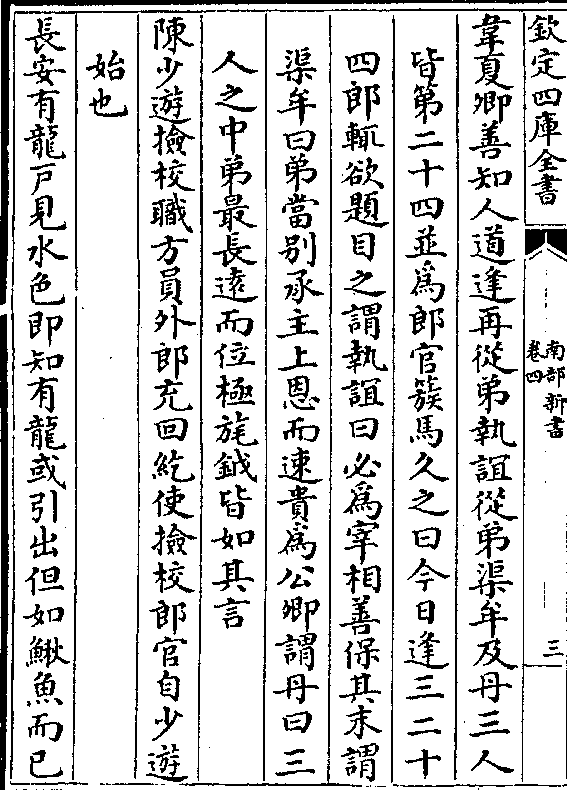 欽定四庫全書
南部新書
卷四
三
韋夏卿善知人道逢再從弟執誼從弟渠牟及丹三人
皆第二十四並為郎官簇馬久之曰今日逢三二十
四郎輒欲題目之謂執誼曰必為宰相善保其末謂
渠牟曰弟當别承主上恩而速貴為公卿謂丹曰三
人之中弟最長遠而位極旄鉞皆如其言
陳少遊撿校職方員外郎充回紇使撿校郎官自少遊
始也
長安有龍戸見水色即知有龍或引出但如鰍魚而已